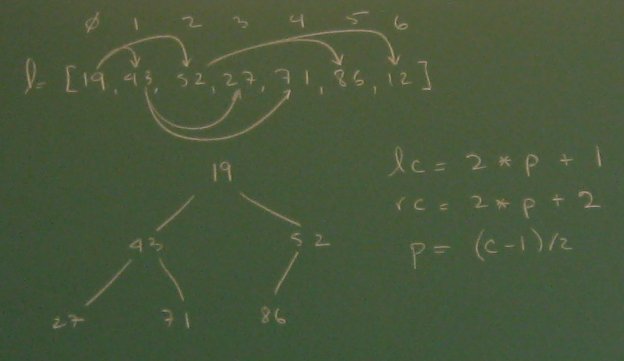 0 1 2 3 4 5 6
l = [19, 43, 52, 27, 71, 86, 12]
19
43 52
27 71 86
lc = 2 * p + 1
rc = 2 * p + 2
p = (c-1)/2